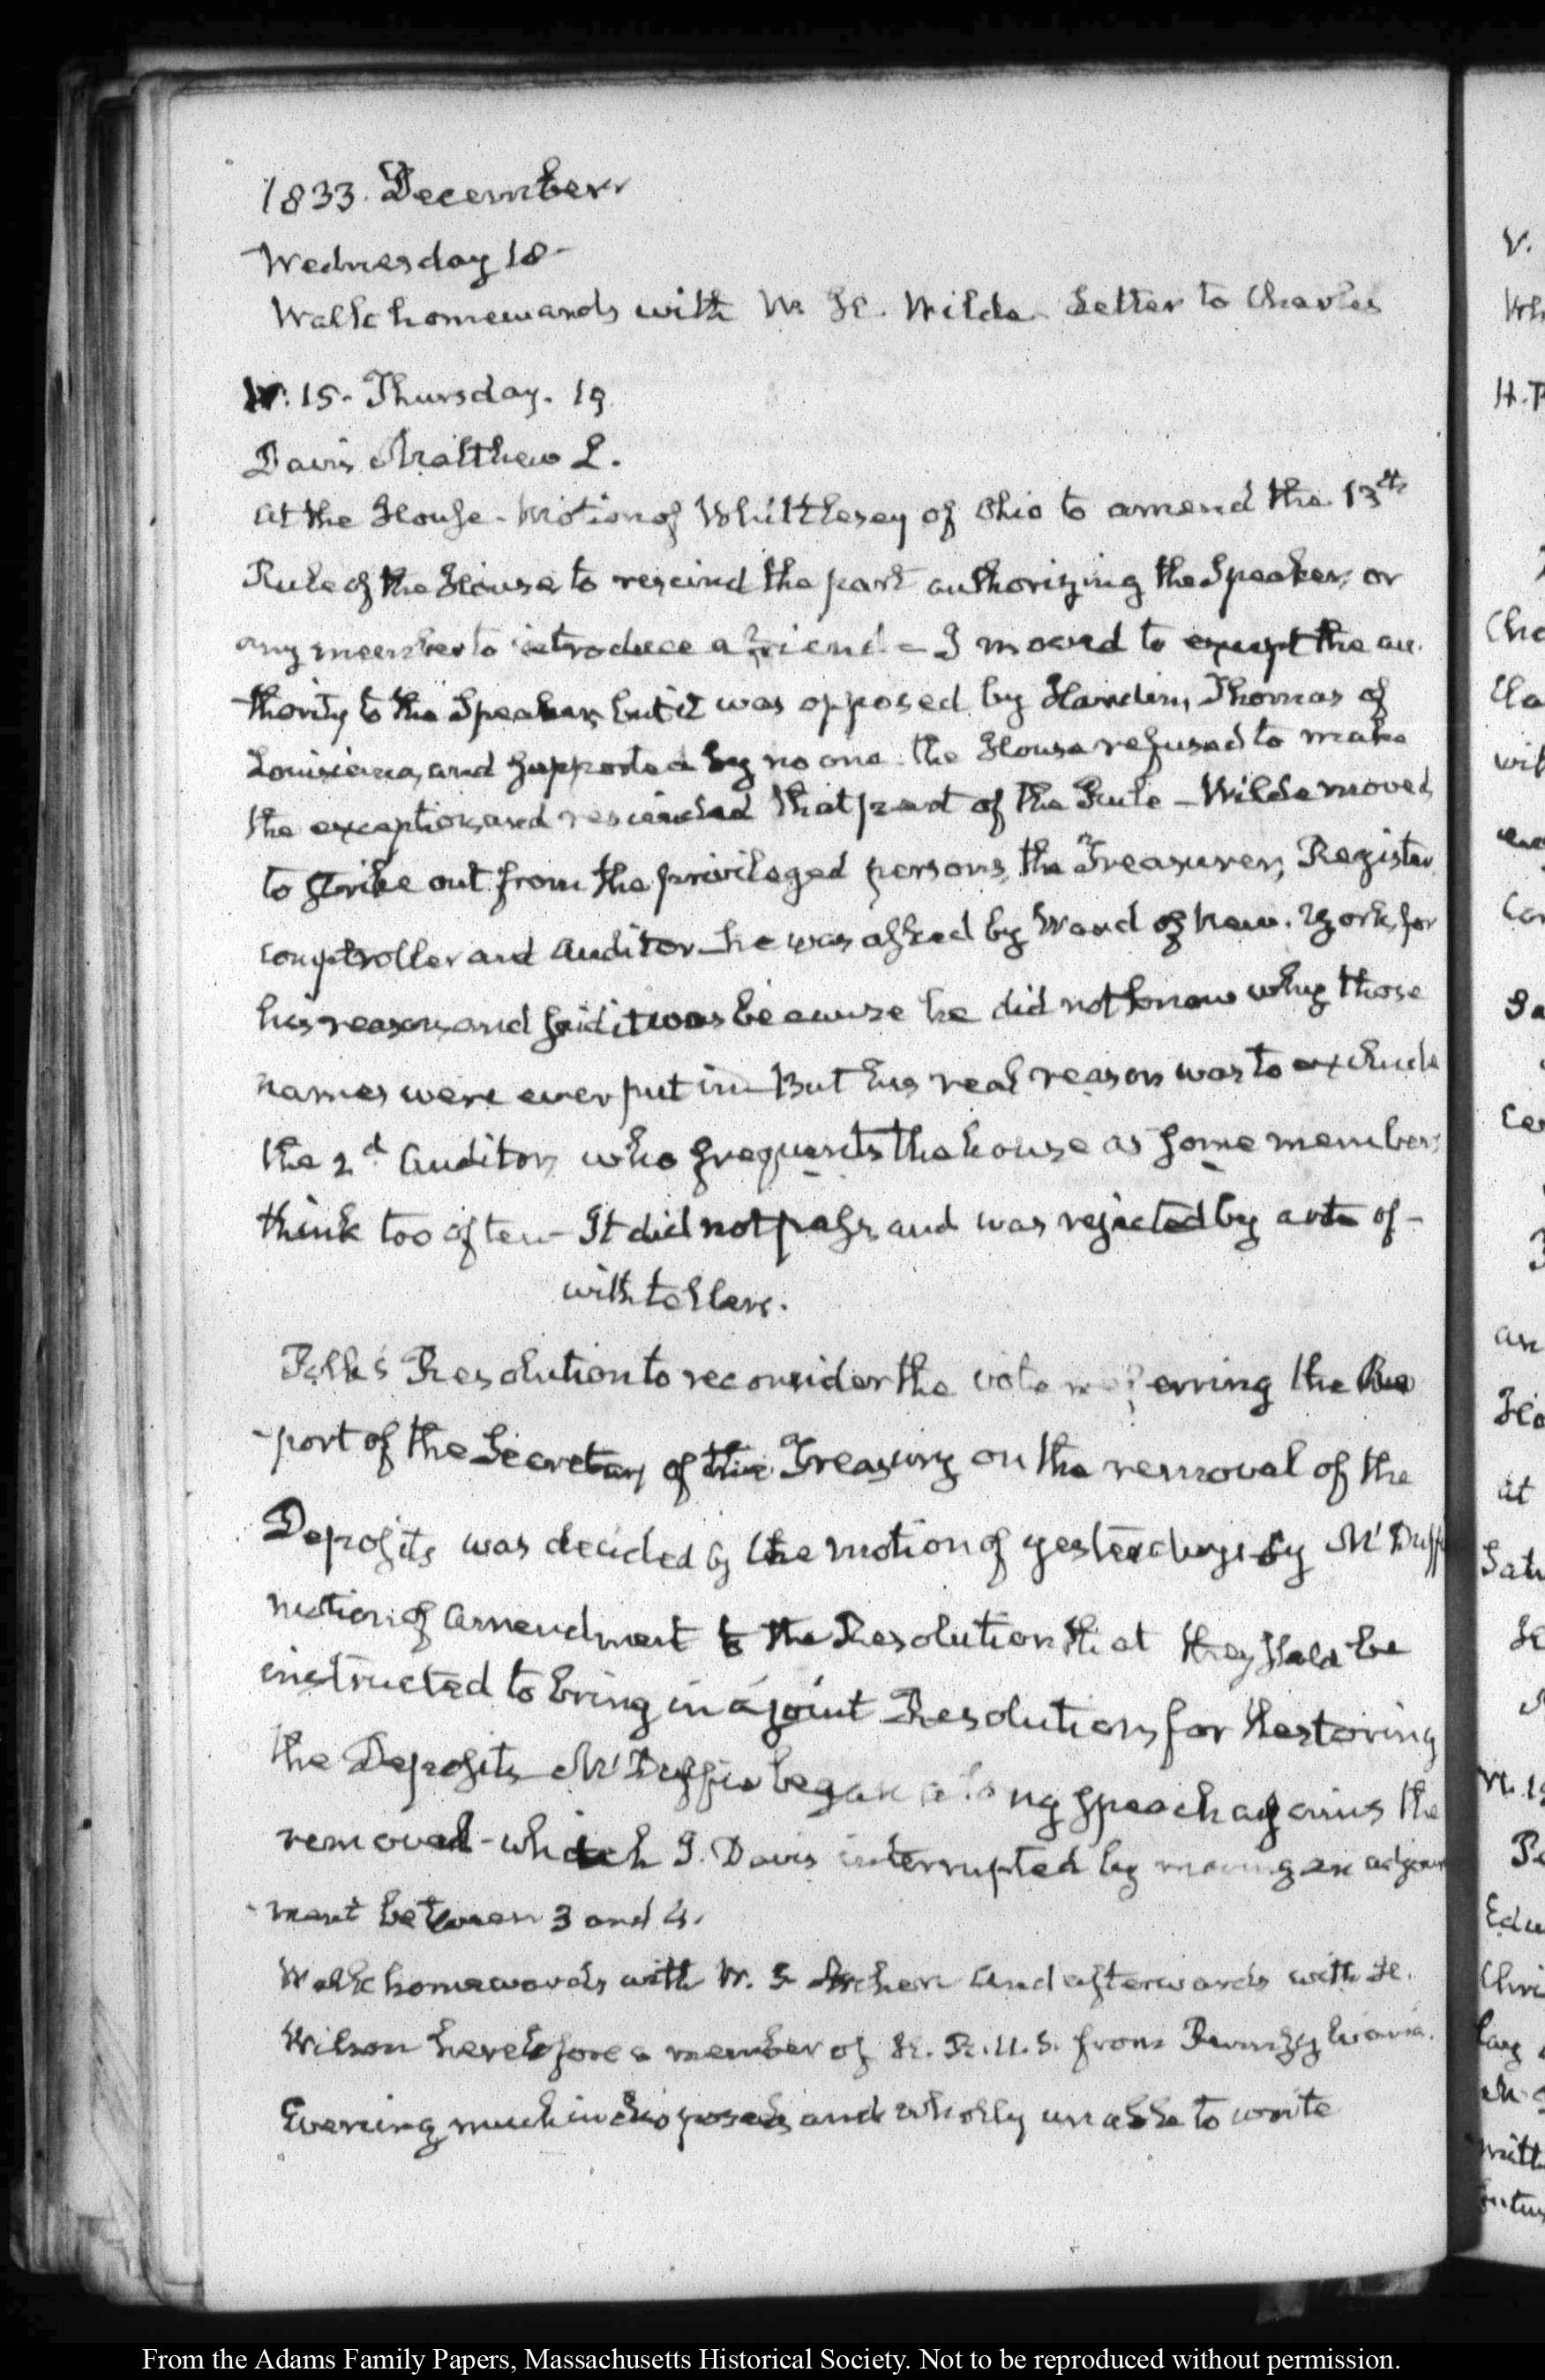 1833. December
Wednesday 18-
Walk homewards with W. Wilde- Letter to Charles
IV. 15. Thursday. 19
Davis Matthew L.
At the House- Motion of Whittlesey of Ohio to amend the 13th
Rule of the House to rescind the part authorizing the Speaker, or
any member to introduce a friend- I moved to except the au-
thority to the Speaker, but it was opposed by Hardin, Thomas of
Louisiana, and supported by no one. the House refused to make
the exception, and rescinded that part of the Rule- Wilde moved
to strike out from the privileged persons, the Treasurer, Register,
Comptroller and Auditor- he was asked by Ward of New-York, for
his reason, and said it was because he did not know why those
names were ever put in- But his real reason was to exclude
the 2d Auditor, who frequents the house as some members
think too often- It did not pass, and was rejected by a vote of-
with tellers.
Polk's Resolution to reconsider the vote referring the Re
-port of the Secretary of the Treasury on the removal of the
Deposits was decided by the motion of yesterday- by McDuffie
motion of Amendment to the Resolution that they should be
instructed to bring in a joint Resolution, for restoring
the Deposits- McDuffie began a long speech against the
removal- which J. Davis interrupted by moving an adjourn
-ment between 3 and 4.
Walk homewards with W. S. Archer and afterwards with H.
Wilson heretofore a member of H. R. U. S. from Pennsylvania.
Evening much indisposed, and wholly unable to write
From the Adams Family Papers, Massachusetts Historical Society. Not to be reproduced without permission.